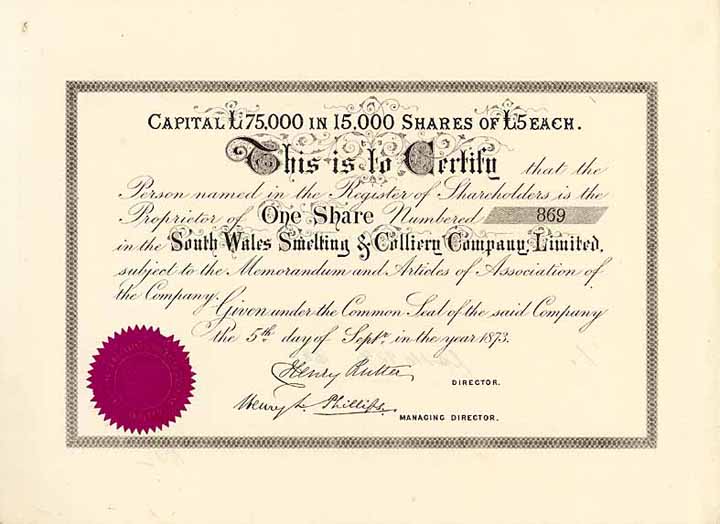 CAPITAL £75,000 IN 15,000 SHARES OF £5 EACH.
This is to Certify that the
Person named in the Register of Shareholders is the
Proprietor of One Share Numbered 869
in the South Wales Smelting & Colliery Company, Limited,
subject to the Memorandum and Articles of Association of
the Company. Given under the Common Seal of the said Company
the 5th day of Septr. in the year 1873.
Henry Rutter
DIRECTOR.
Henry L. Phillips.
MANAGING DIRECTOR.